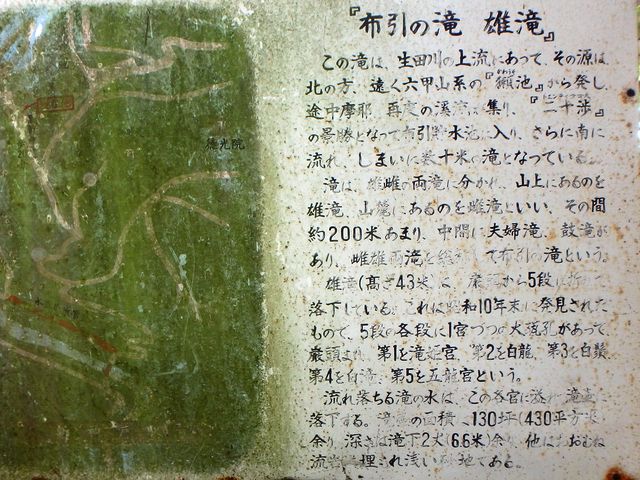 『布引の滝 雄滝』
この滝は、生田川の上流にあって、その源は
北の方、遠く六甲山系の『獺池』から発し、
途中摩耶、再度の溪流 集り、『二十渉』
の景勝となって布引貯水池に入り、さらに南に
流れ、しまいに数十米の滝となっている。
滝は、雄雌の両滝に分かれ、山上にあるのを
雄滝、山麓にあるのを雌滝といい、その間
約200米あまり、中間に夫婦滝、鼓滝が
あり、雌雄両滝を総称して布引の滝という。
雄滝(高さ43米)は、巌頭から5段に
落下している。これは昭和10年末に発見された
もので、5段の各段に1宮づつの大甌孔があって、
巌頭より、第1を滝姫宮、第2を白龍、第3を白鬚、
第4を白滝、第5を五龍宮という。
流れ落ちる滝の水は、この各宮に溢れ滝壷に
落下する。滝壷の面積 130坪(430平方米)
余り、深さは滝下2丈(6.6米)余り、他はおおむね
流岩 埋され浅い砂地である。
徳光院